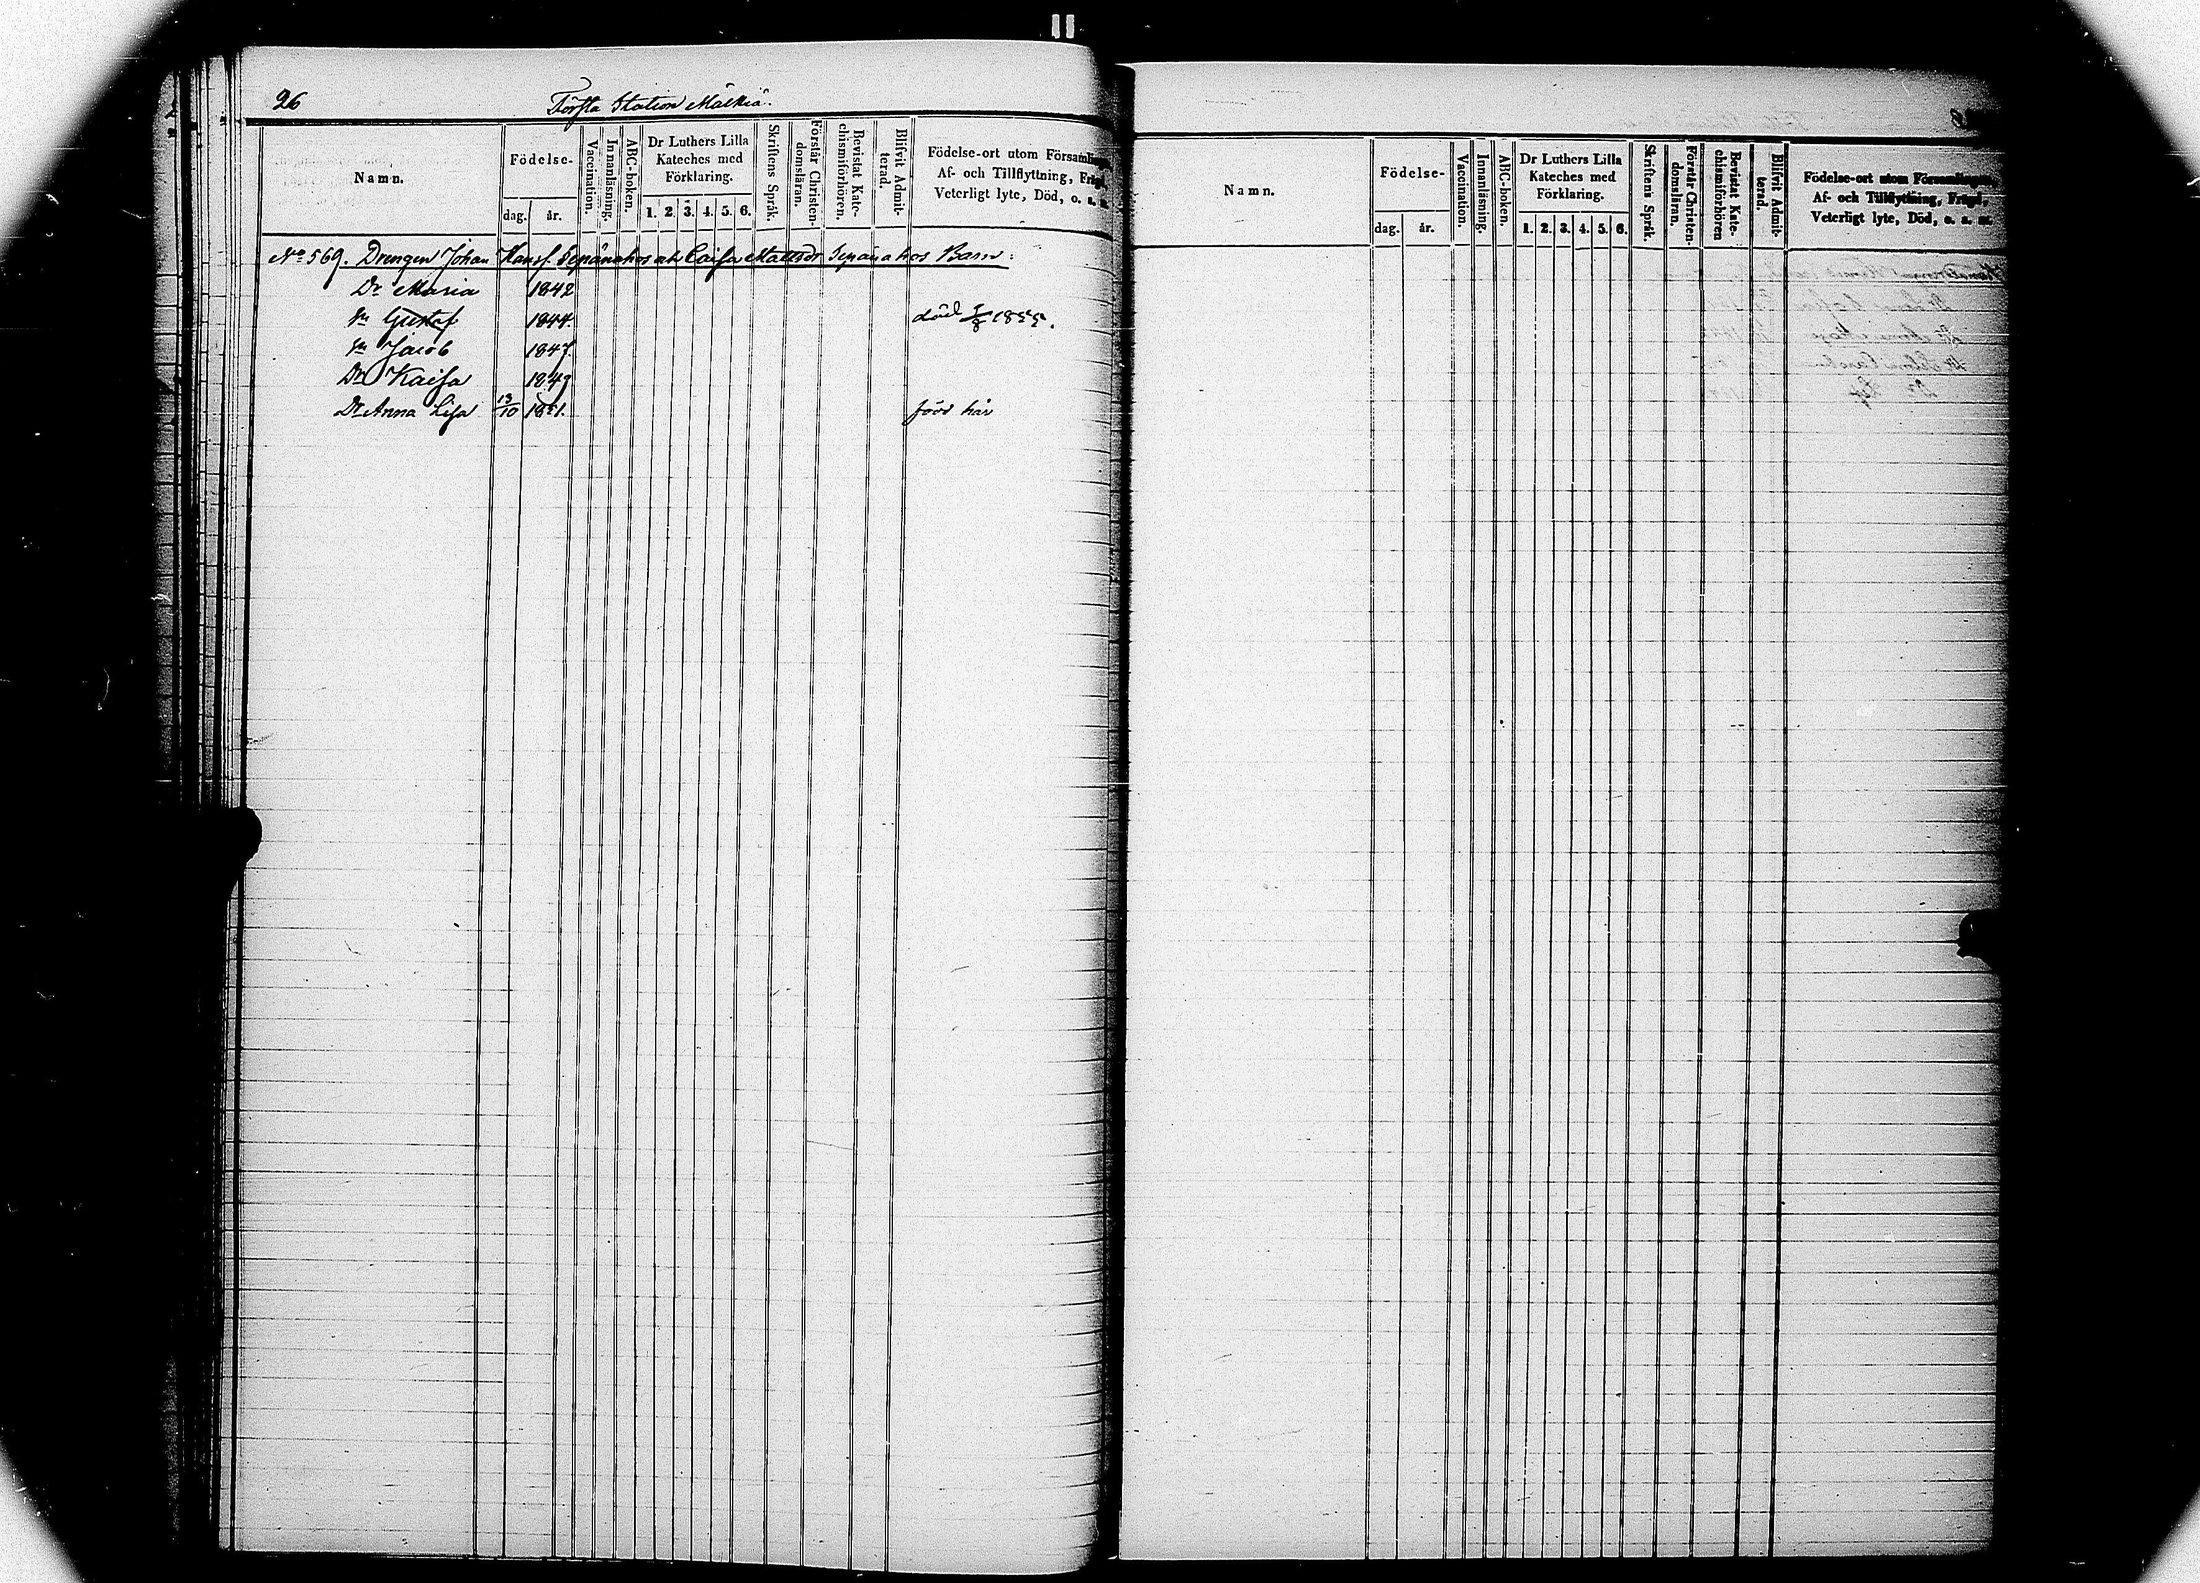 26
Första Station Mälkiä.
Namn.
Födelse-
dag. år.
Vaccination.
Innanläsning.
ABC-boken.
Dr Luthers Lilla
Kateches med
Förklaring.
1. 2. 3. 4. 5. 6.
Skriftens Språk.
Förstår Christen-
domsläran.
Bevistat Kate-
chismiförhören.
Blifvit Admit-
terad.
Födelse-ort utom Församlingen,
Af- och Tillflyttning, Frägd,
Veterligt lyte, Död, o. s. m.
No 569. Drengen Johan Hansf. Sepänahos och Caisa Mattsdr Sepänahos Barn:
Dr Maria 1842
Sn Gustaf 1844. död 1855.
Sn Jacob 1847.
Dr Kaisa 1849
Dr Anna Lisa 13/10 1851. född här
Namn.
Födelse-
dag. år.
Vaccination.
Innanläsning.
ABC-boken.
Dr Luthers Lilla
Kateches med
Förklaring.
1. 2. 3. 4. 5. 6.
Skriftens Språk.
Förstår Christen-
domsläran.
Bevistat Kate-
chismiförhören
Blifvit Admit-
terad.
Födelse-ort utom Församlingen,
Af- och Tillflyttning, Frägd,
Veterligt lyte, Död, o. s. m.